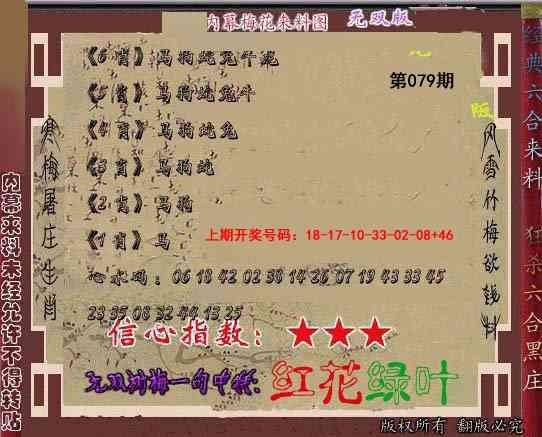 内幕梅花来料图 无双版
第079期
《6肖》马狗蛇兔牛龙
《5肖》马狗蛇兔牛
《4肖》马狗蛇兔
《3肖》马狗蛇
《2肖》马狗
《1肖》马
上期开奖号码：18-17-10-33-02-08+46
心水码：06 18 42 02 38 14 26 07 19 43 33 45
23 35 08 32 44 13 25
信心指数：★★★
无双梅一句中特：红花绿叶
版权所有 翻版必究
寒梅屠庄生肖
风雪竹梅欲钱料
内幕来料未经允许不得转贴
经典六合来料 狂杀六合黑庄